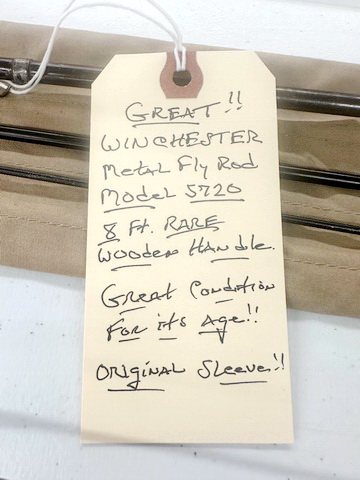 GREAT!!
WINCHESTER
Metal Fly Rod
Model 5720
8 Ft. RARE
Wooden Handle.
Great Condition
For its Age!!
ORIGINAL Sleeve!!